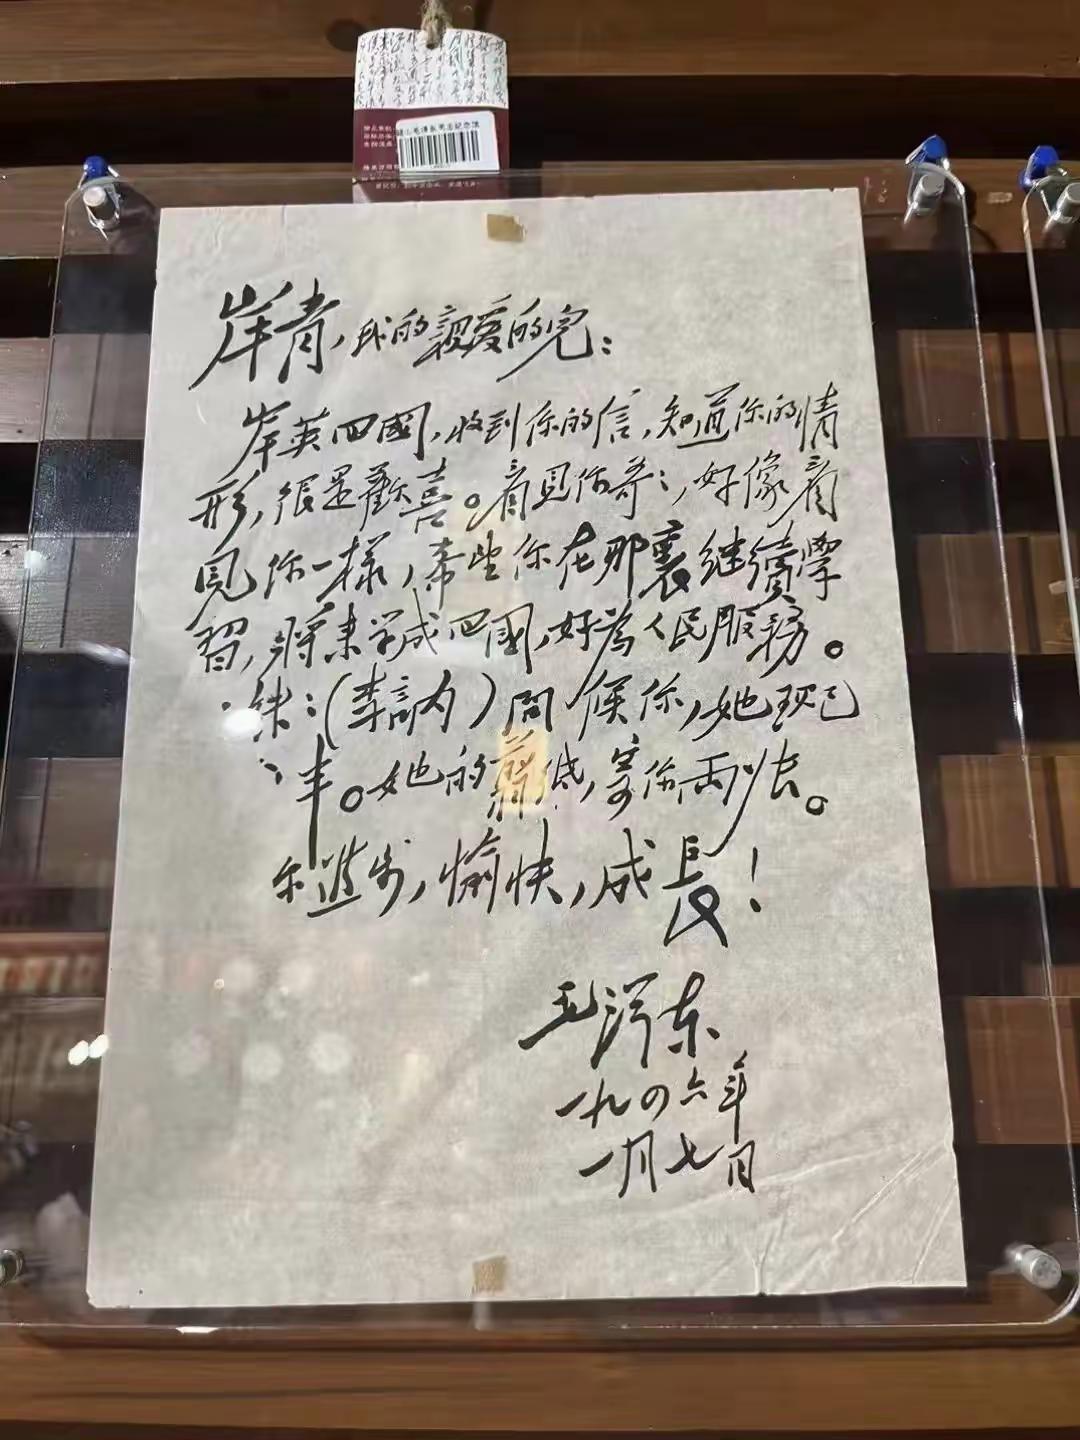 韶山毛泽东同志纪念馆
岸青，我的親爱的兒：
岸英回國，收到你的信，知道你的情
形，很是歡喜。看見你哥：，好像看
見你一樣，希望你在那裏继續學
習，將来学成回國，好為人民服務。
妹：（李訥）問候你，她現已
歲半。她的剪纸，寄你两張。
你進步，愉快，成長！
毛澤东
一九四六年
一月七日